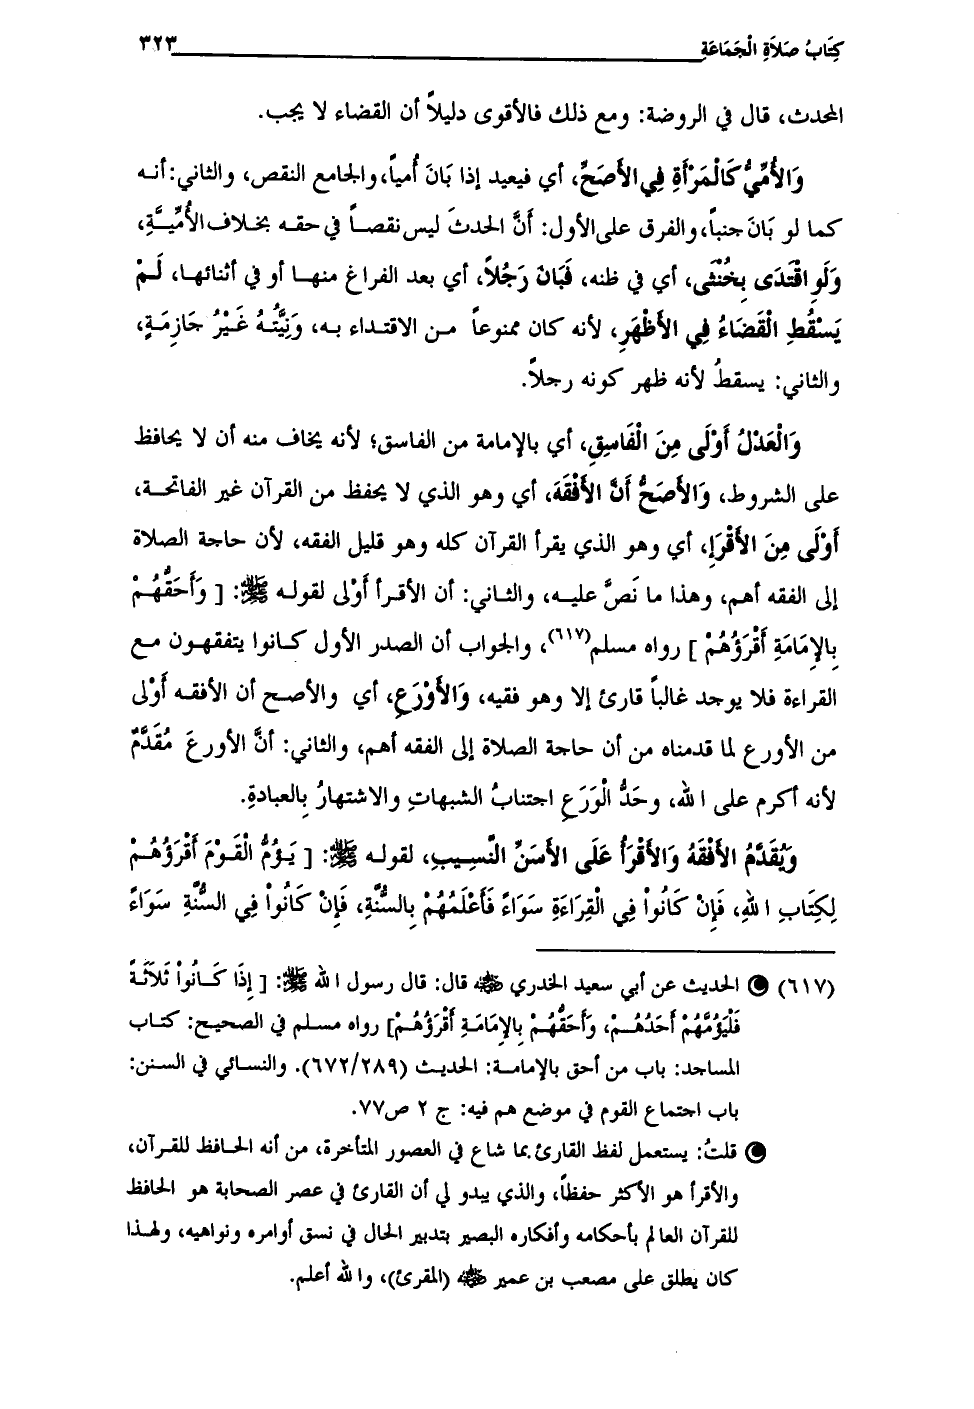 كِتَابُ صَلَاةِ الْجَمَاعَةِ ٣٢٣
المحدث، قال في الروضة: ومع ذلك فالأقوى دليلاً أن القضاء لا يجب.
وَالأُمِّيُّ كَالْمَرْأَةِ فِي الأَصَحِّ، أي فيعيد إذا بَانَ أُمياً، والجامع النقص، والثاني: أنه
كما لو بَانَ جنباً، والفرق على الأول: أَنَّ الحدثَ ليس نقصاً في حقه بخلاف الأُمِّيَّةِ،
وَلَوِ اقْتَدَى بِخُنْثَى، أي في ظنه، فَبَانَ رَجُلاً، أي بعد الفراغ منها أو في أثنائها، لَمْ
يَسْقُطِ الْقَضَاءُ فِي الأَظْهَرِ، لأنه كان ممنوعاً من الاقتداء به، وَنِيَّتُهُ غَيْرُ جَازِمَةٍ،
والثاني: يسقطُ لأنه ظهر كونه رجلاً.
وَالْعَدْلُ أَوْلَى مِنَ الْفَاسِقِ، أي بالإمامة من الفاسق؛ لأنه يخاف منه أن لا يحافظ
على الشروط، وَالأَصَحُّ أَنَّ الأَفْقَهَ، أي وهو الذي لا يحفظ من القرآن غير الفاتحة،
أَوْلَى مِنَ الأَقْرَإِ، أي وهو الذي يقرأ القرآن كله وهو قليل الفقه، لأن حاجة الصلاة
إلى الفقه أهم، وهذا ما نَصَّ عليه، والثاني: أن الأقرأ أَوْلى لقوله ﷺ: [ وَأَحَقُّهُمْ
بِالإِمَامَةِ أَقْرَؤُهُمْ ] رواه مسلم(٦١٧)، والجواب أن الصدر الأول كانوا يتفقهون مع
القراءة فلا يوجد غالباً قارئ إلا وهو فقيه، وَالأَوْرَعِ، أي والأصح أن الأفقه أَوْلى
من الأورع لما قدمناه من أن حاجة الصلاة إلى الفقه أهم، والثاني: أنَّ الأورعَ مُقَدَّمٌ
لأنه أكرم على الله، وحَدُّ الْوَرَعِ اجتنابُ الشبهاتِ والاشتهارُ بِالعبادةِ.
وَيُقَدَّمُ الأَفْقَهُ وَالأَقْرَأُ عَلَى الأَسَنِّ النَّسِيبِ، لقوله ﷺ: [ يَؤُمُّ الْقَوْمَ أَقْرَؤُهُمْ
لِكِتَابِ اللهِ، فَإِنْ كَانُواْ فِي الْقِرَاءَةِ سَوَاءً فَأَعْلَمُهُمْ بِالسُّنَّةِ، فَإِنْ كَانُواْ فِي السُّنَّةِ سَوَاءً
(٦١٧) الحديث عن أبي سعيد الخدري ﷺ قال: قال رسول الله ﷺ: [ إِذَا كَانُواْ ثَلَاثَةً
فَلْيَؤُمَّهُمْ أَحَدُهُمْ، وَأَحَقُّهُمْ بِالإِمَامَةِ أَقْرَؤُهُمْ] رواه مسلم في الصحيح: كتاب
المساجد: باب من أحق بالإمامة: الحديث (٦٧٢/٢٨٩). والنسائي في السنن:
باب اجتماع القوم في موضع هم فيه: ج ٢ ص٧٧.
قلتُ: يستعمل لفظ القارئ بما شاع في العصور المتأخرة، من أنه الحافظ للقرآن،
والأقرأ هو الأكثر حفظاً، والذي يبدو لي أن القارئ في عصر الصحابة هو الحافظ
للقرآن العالم بأحكامه وأفكاره البصير بتدبير الحال في نسق أوامره ونواهيه، ولهذا
كان يطلق على مصعب بن عمير (المقرئ)، والله أعلم.